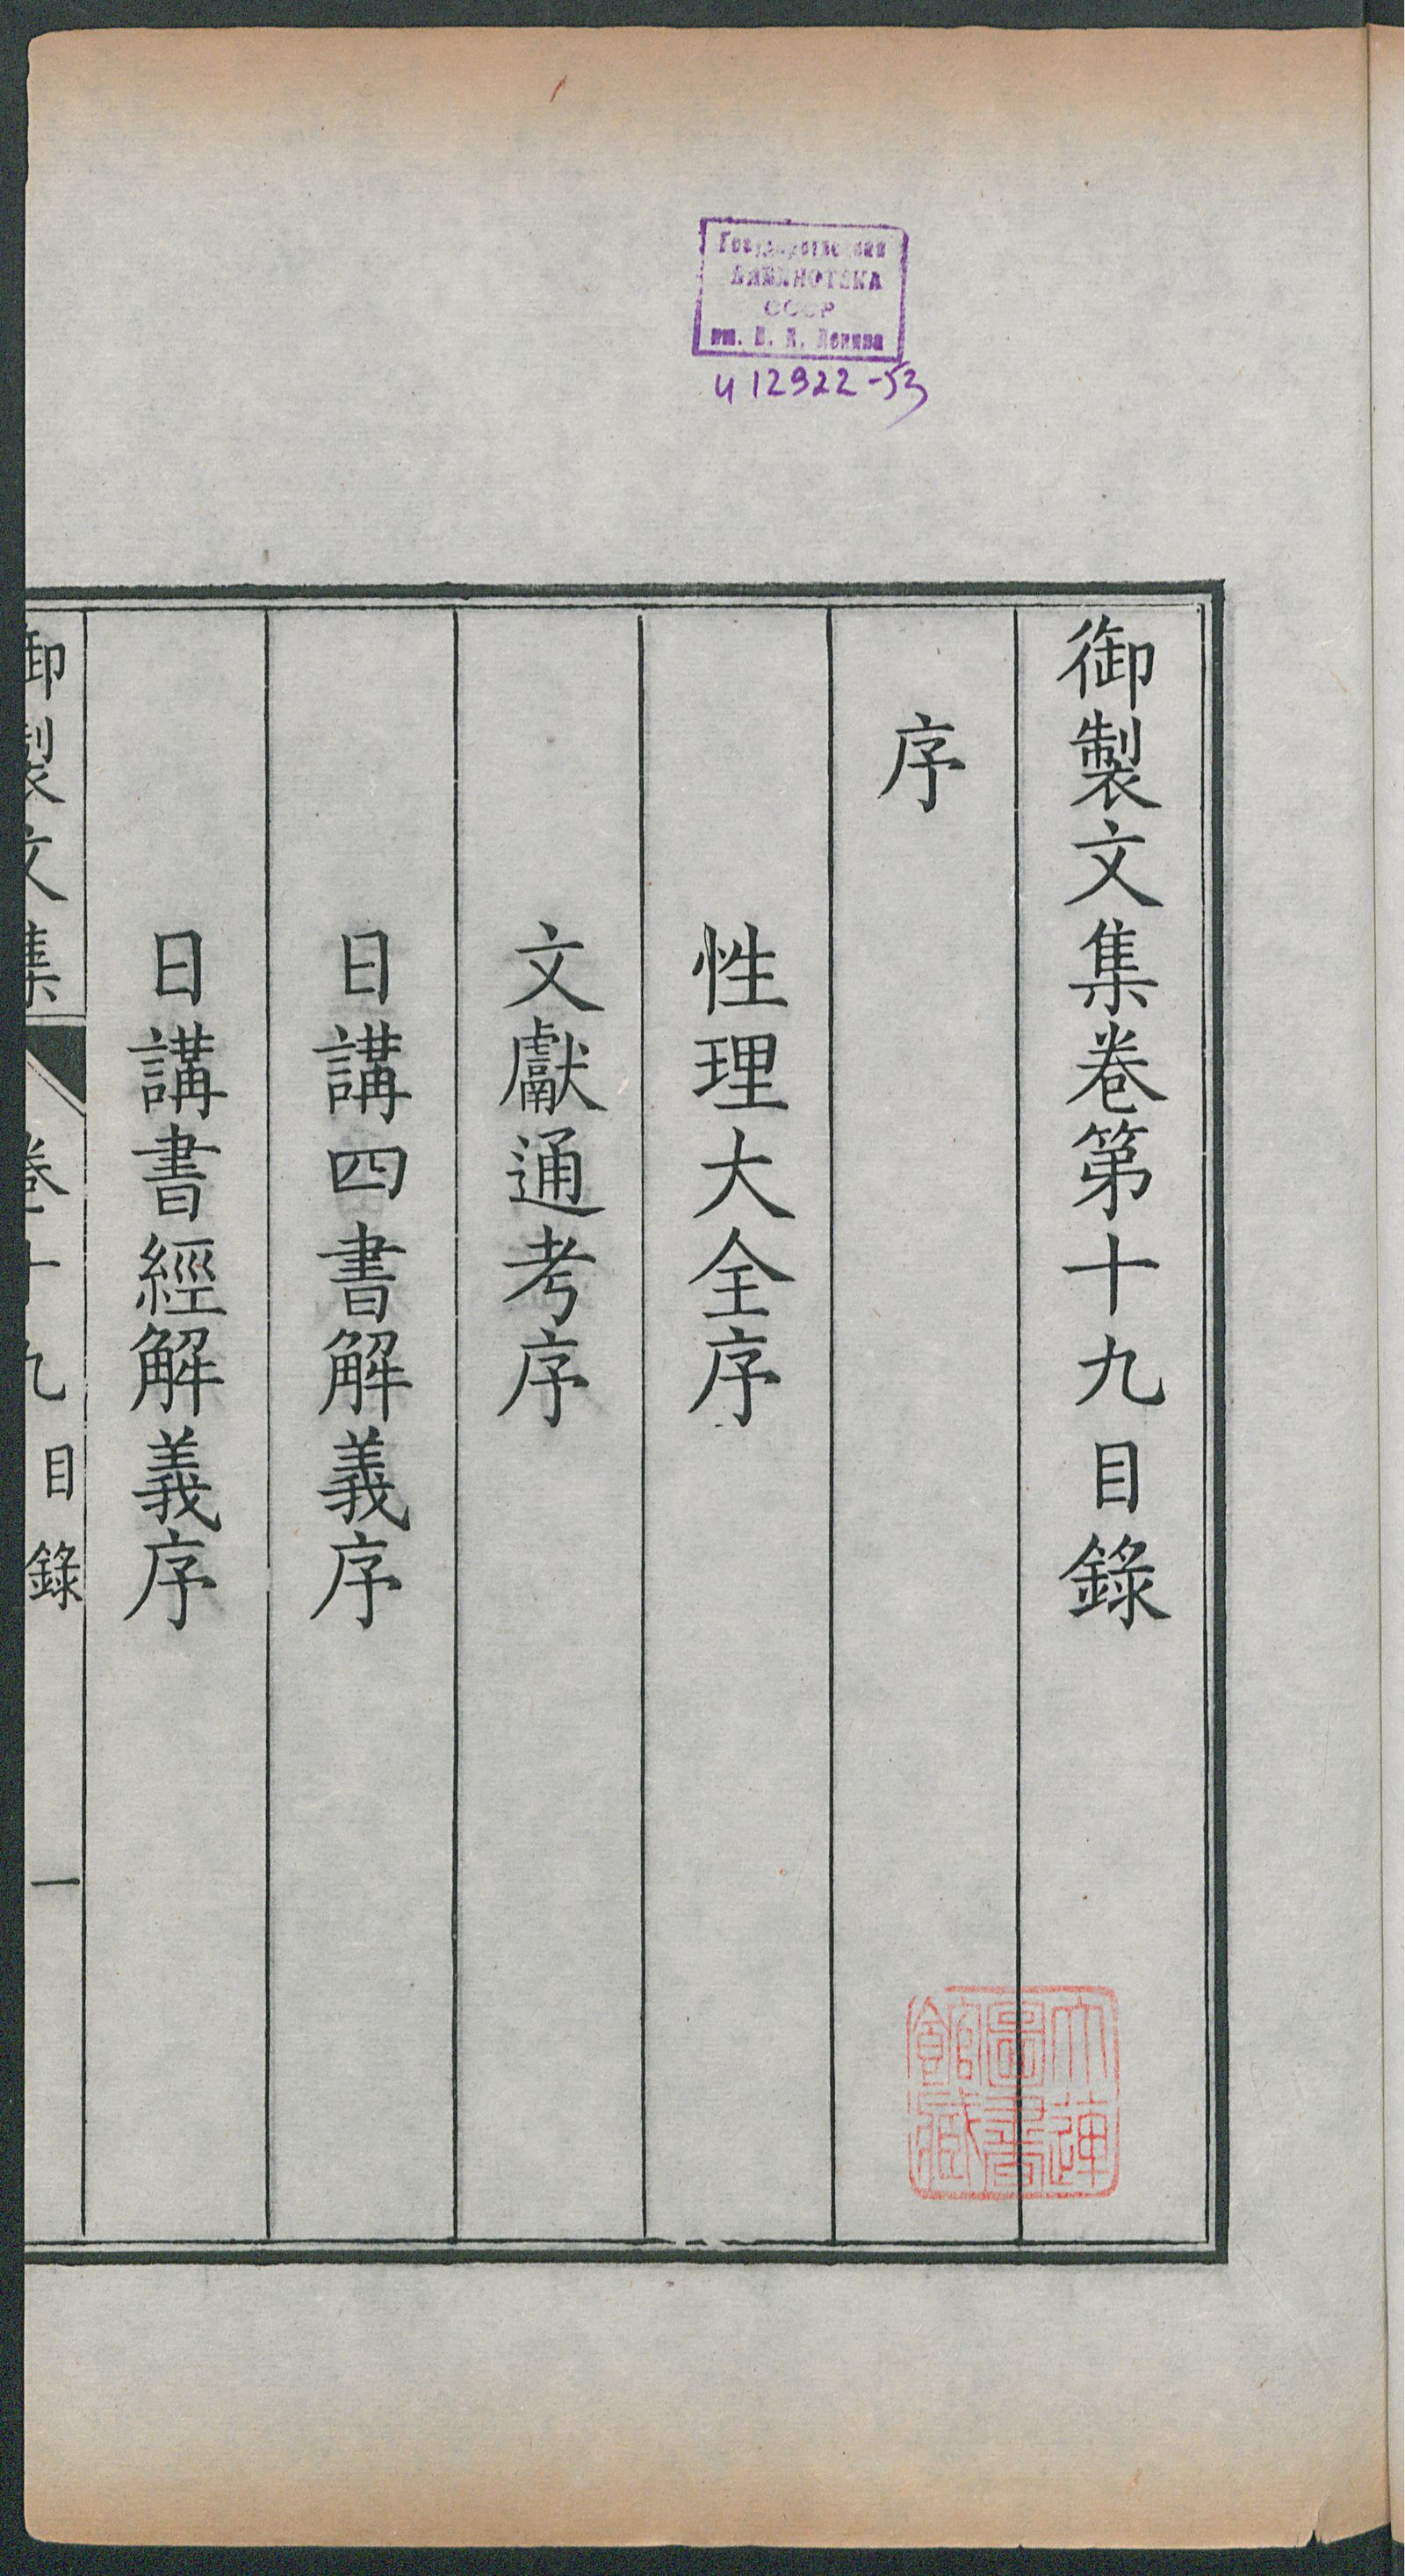 Государственная
БИБЛИОТЕКА
СССР
им. В. И. Ленина
и 12922-53
御製文集卷第十九目錄
序
性理大全序
文獻通考序
日講四書解義序
日講書經解義序
御製文集
卷十九目錄
一
大連
圖書
館藏